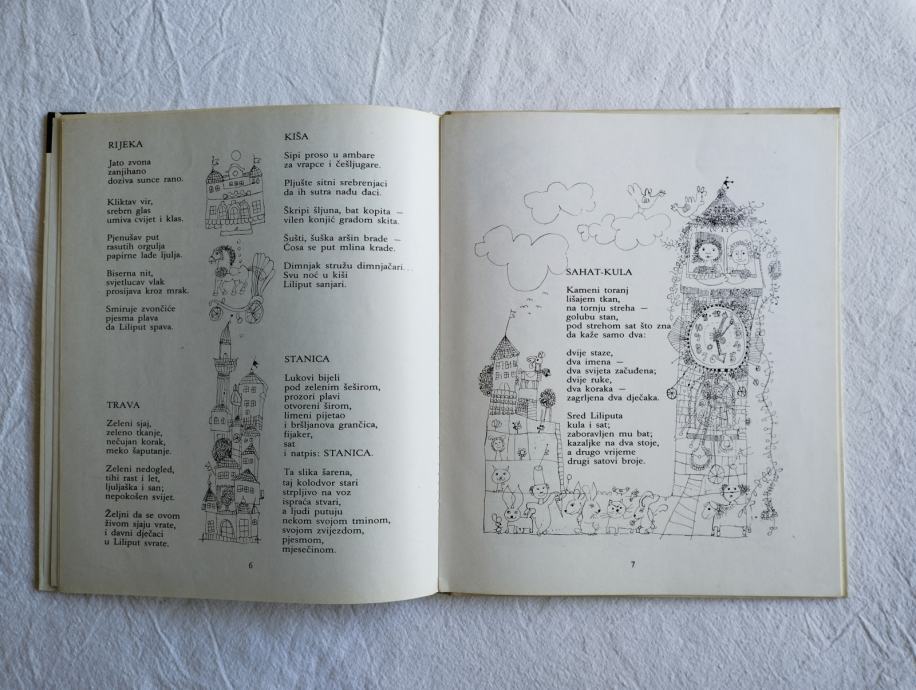 RIJEKA
Jato zvona
zanjihano
doziva sunce rano.
Kliktav vir,
srebrn glas
umiva cvijet i klas.
Pjenušav put
rasutih orgulja
papirne lađe ljulja.
Biserna nit,
svjetlucav vlak
prosijava kroz mrak.
Smiruje zvončiće
pjesma plava
da Liliput spava.
TRAVA
Zeleni sjaj,
zeleno tkanje,
nečujan korak,
meko šaputanje.
Zeleni nedogled,
tihi rast i let,
ljuljaška i san;
nepokošen svijet.
Željni da se ovom
živom sjaju vrate,
i davni dječaci
u Liliput svrate.
KIŠA
Sipi proso u ambare
za vrapce i češljugare.
Pljušte sitni srebrenjaci
da ih sutra nađu đaci.
Škripi šljuna, bat kopita —
vilen konjić gradom skita.
Šušti, šuška aršin brade —
Ćosa se put mlina krade.
Dimnjak stružu dimnjačari...
Svu noć u kiši
Liliput sanjari.
STANICA
Lukovi bijeli
pod zelenim šeširom,
prozori plavi
otvoreni širom,
limeni pijetao
i bršljanova grančica,
fijaker,
sat
i natpis: STANICA.
Ta slika šarena,
taj kolodvor stari
strpljivo na voz
ispraća stvari,
a ljudi putuju
nekom svojom tminom,
svojom zvijezdom,
pjesmom,
mjesečinom.
6
SAHAT-KULA
Kameni toranj
lišajem tkan,
na tornju streha —
golubu stan,
pod strehom sat što zna
da kaže samo dva:
dvije staze,
dva imena —
dva svijeta začuđena;
dvije ruke,
dva koraka —
zagrljena dva dječaka.
Sred Liliputa
kula i sat;
zaboravljen mu bat;
kazaljke na dva stoje,
a drugo vrijeme
drugi satovi broje.
7